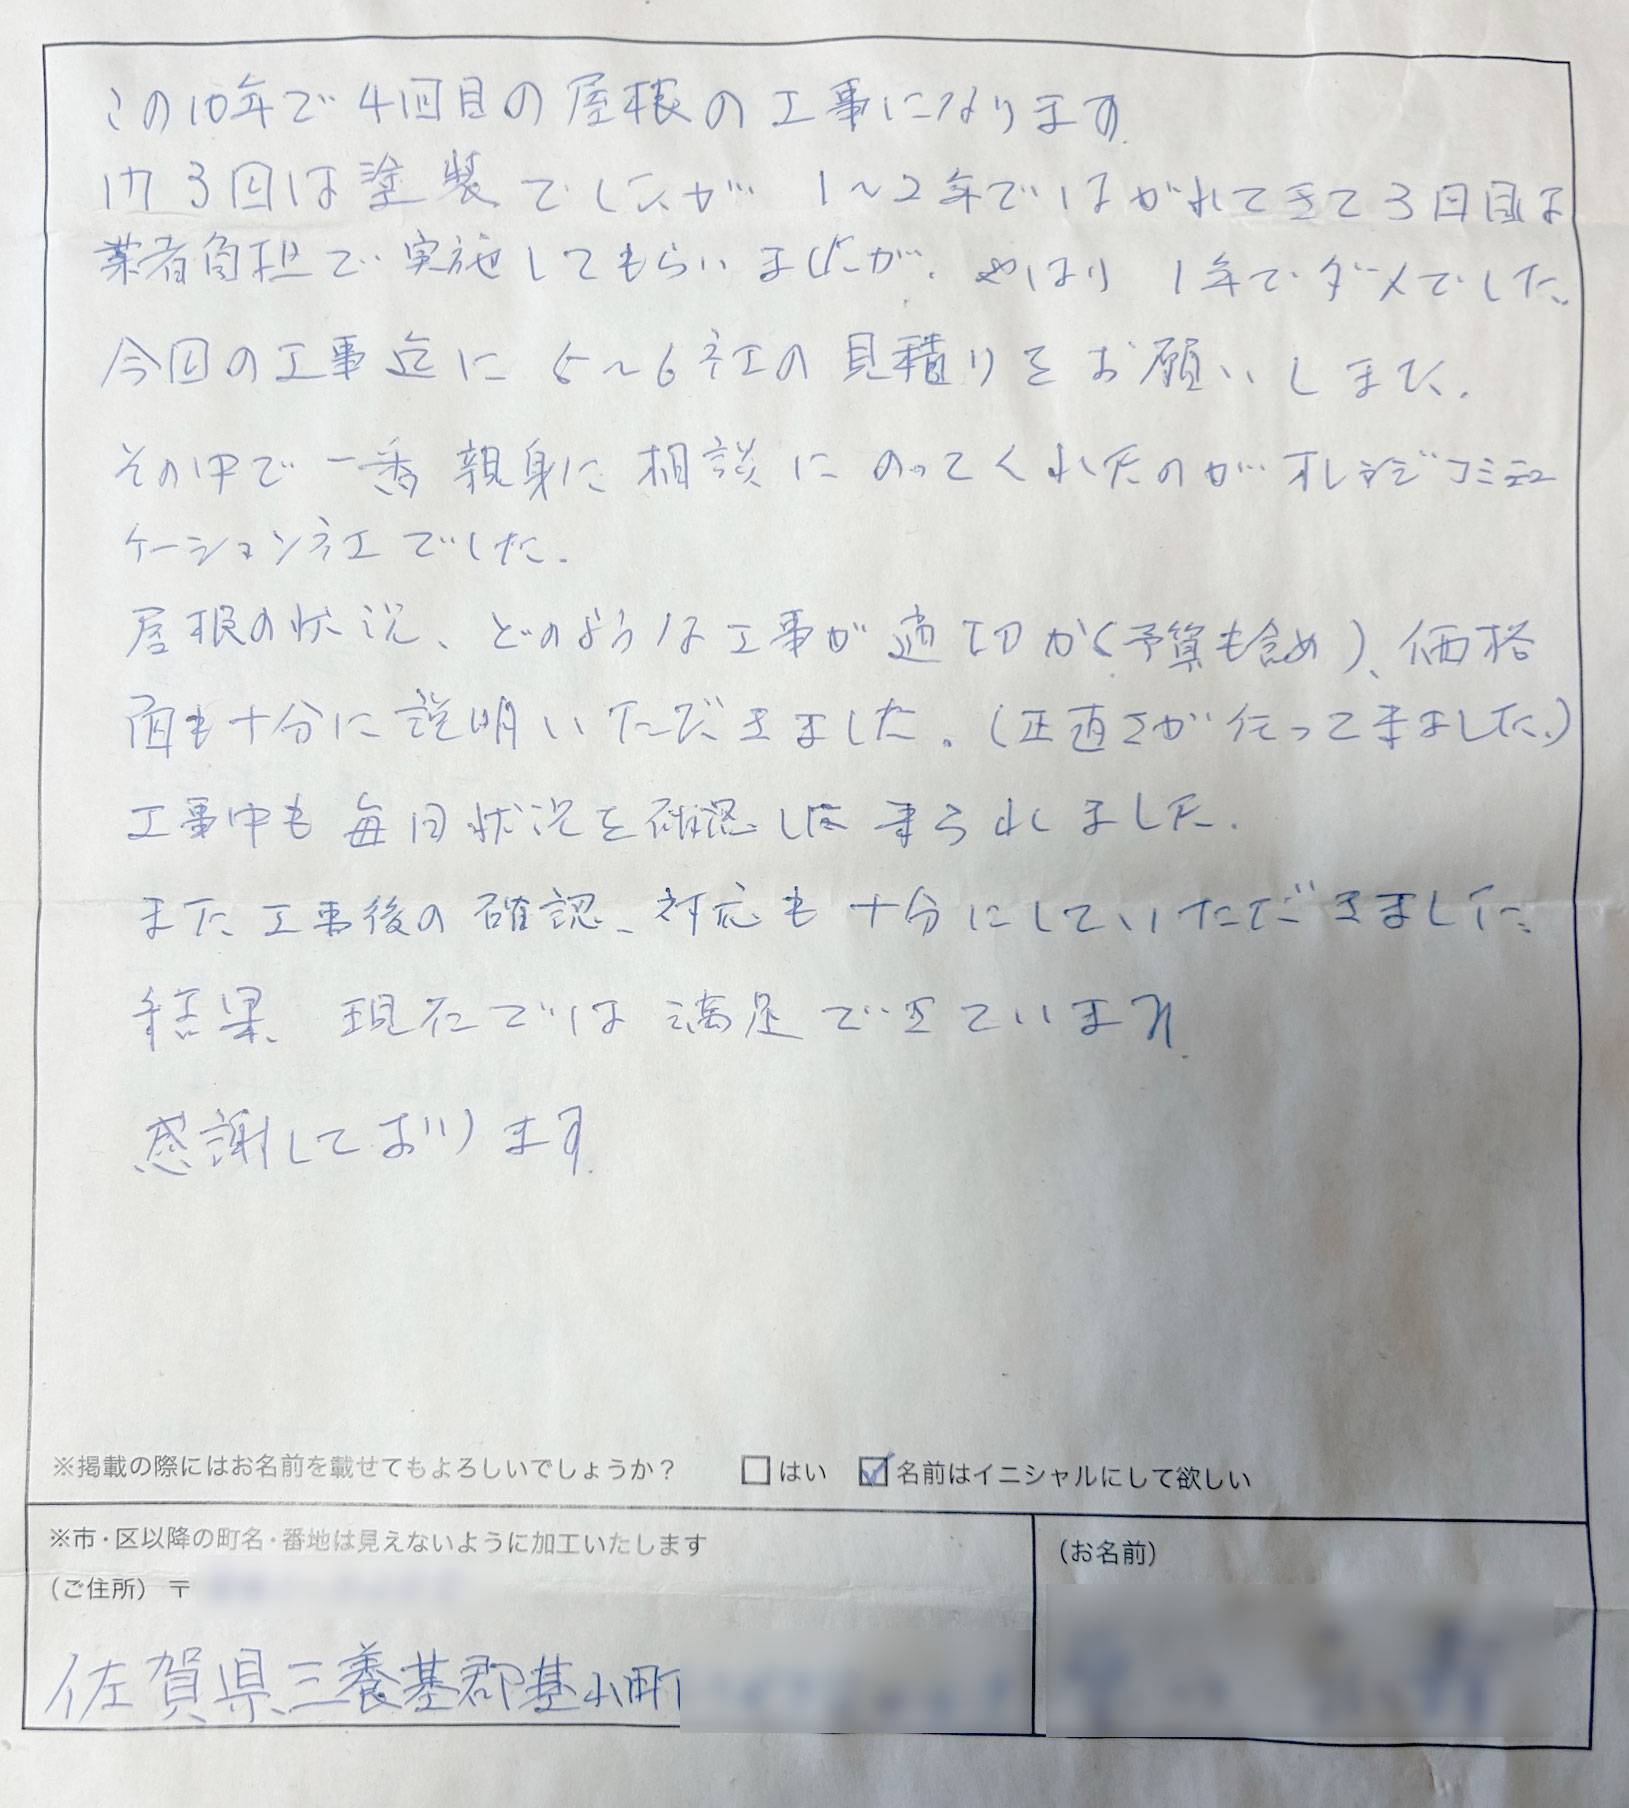 この10年で4回目の屋根の工事になります.
内3回は塗装でしたが 1～2年ではがれてきて3回目は
業者負担で実施してもらいましたが、やはり 1年でダメでした.
今回の工事迄に 5～6社の見積りをお願いしました.
その中で一番親身に相談にのってくれたのがオレンジコミュニ
ケーション社でした.
屋根の状況、どのような工事が適切か(予算も含め)、価格
面も十分に説明いただきました。(正直さが伝ってきました.)
工事中も毎日状況を確認しに来られました.
また工事後の確認、対応も十分にしていただきました.
結果、現在では満足できています.
感謝しております.
※掲載の際にはお名前を載せてもよろしいでしょうか? はい 名前はイニシャルにして欲しい
※市・区以降の町名・番地は見えないように加工いたします
(お名前)
(ご住所) 〒
佐賀県三養基郡基山町